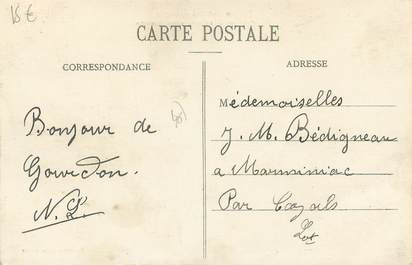 15 €
CARTE POSTALE
CORRESPONDANCE
ADRESSE
Bonjour de
Gourdon.
Médemoiselles
J. M. Bédigneau
a Marminiac
Par Cazals
Lot